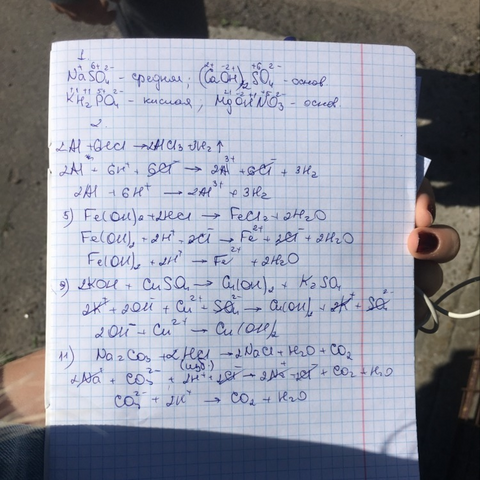 1
NaSO₄ - средняя; (CaOH)₂SO₄ - основ.
KH₂PO₄ - кислая, MgOHNO₃ - основ.
2
2Al + 6HCl → 2AlCl₃ + 3H₂↑
2Al + 6H⁺ + 6Cl⁻ → 2Al³⁺ + 6Cl⁻ + 3H₂
2Al + 6H⁺ → 2Al³⁺ + 3H₂
5) Fe(OH)₂ + 2HCl → FeCl₂ + 2H₂O
Fe(OH)₂ + 2H⁺ + 2Cl⁻ → Fe²⁺ + 2Cl⁻ + 2H₂O
Fe(OH)₂ + 2H⁺ → Fe²⁺ + 2H₂O
9) 2KOH + CuSO₄ → Cu(OH)₂ + K₂SO₄
2K⁺ + 2OH⁻ + Cu²⁺ + SO₄²⁻ → Cu(OH)₂ + 2K⁺ + SO₄²⁻
2OH⁻ + Cu²⁺ → Cu(OH)₂
11) Na₂CO₃ + 2HCl → 2NaCl + H₂O + CO₂
(изб.)
2Na⁺ + CO₃²⁻ + 2H⁺ + 2Cl⁻ → 2Na⁺ + 2Cl⁻ + CO₂ + H₂O
CO₃²⁻ + 2H⁺ → CO₂ + H₂O